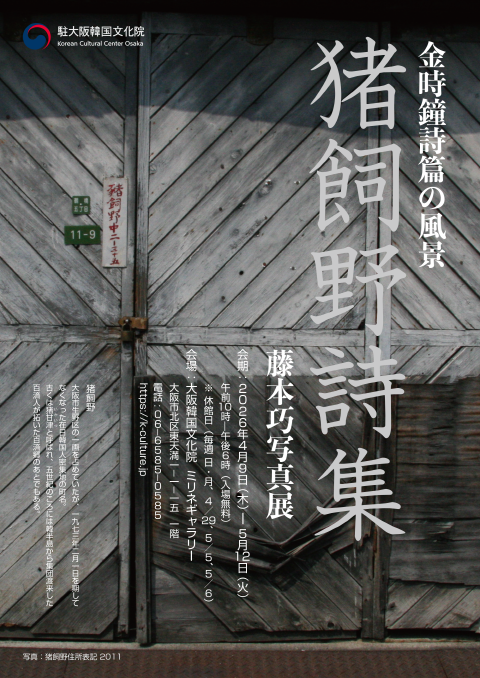 駐大阪韓国文化院
Korean Cultural Center Osaka
金時鐘詩篇の風景
猪飼野詩集
藤本巧写真展
会期：2026年4月9日（木）ー5月12日（火）
午前10時ー午後6時（入場無料）
※休館日（毎週日・月、4／29、5／5、5／6）
会場：大阪韓国文化院 ミリネギャラリー
大阪市北区東天満一ー一ー一五 一階
電話：06ー6585ー0585
https://k-culture.jp
猪飼野
大阪市生野区の一画を占めていたが、一九七三年二月一日を期して
なくなった在日韓国人密集地の町名。
古くは猪甘津と呼ばれ、五世紀のころには韓半島から集団渡来した
百済人が拓いた百済郷のあとでもある。
11-9
猪飼野中二
写真：猪飼野住所表記 2011